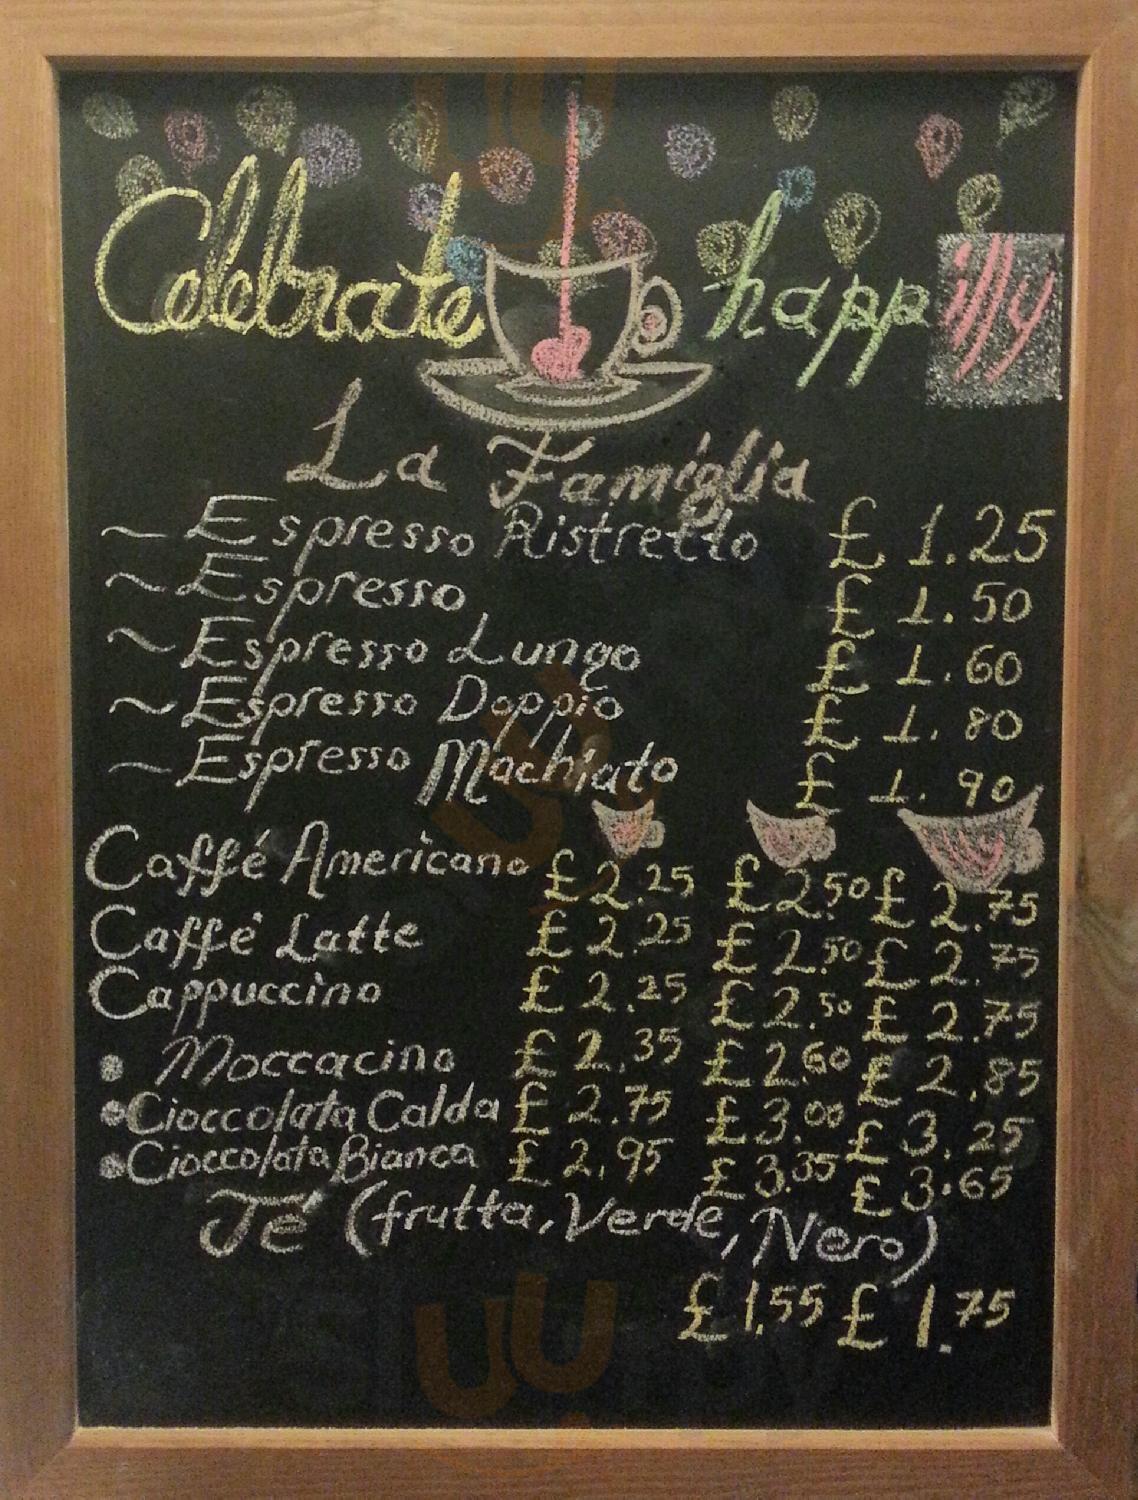 Celebrate happilly
La Famiglia
~ Espresso Ristretto £ 1.25
~ Espresso £ 1.50
~ Espresso Lungo £ 1.60
~ Espresso Doppio £ 1.80
~ Espresso Machiato £ 1.90
Caffé Americano £ 2.25 £ 2.50 £ 2.75
Caffé Latte £ 2.25 £ 2.50 £ 2.75
Cappuccino £ 2.25 £ 2.50 £ 2.75
• Moccacino £ 2.35 £ 2.60 £ 2.85
• Cioccolata Calda £ 2.75 £ 3.00 £ 3.25
• Cioccolata Bianca £ 2.95 £ 3.35 £ 3.65
Té (frutta, Verde, Nero)
£ 1.55 £ 1.75